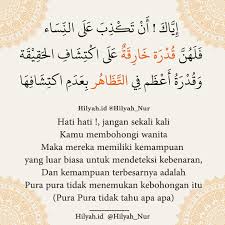 إِيَّاكَ ! أَنْ تَكْذِبَ عَلَى النِّسَاء
فَلَهُنَّ قُدْرَة خَارِقَةٌ عَلَى اكْتِشَافِ الحَقِيْقَة
وَقُدْرَةُ أَعْظَم فِي التَّظَاهُرِ بِعَدَمِ اكْتِشَافِهَا
Hilyah.id @Hilyah_Nur
Hati hati !, jangan sekali kali
Kamu membohongi wanita
Maka mereka memiliki kemampuan
yang luar biasa untuk mendeteksi kebenaran,
Dan kemampuan terbesarnya adalah
Pura pura tidak menemukan kebohongan itu
(Pura Pura tidak tahu apa apa)
Hilyah.id @Hilyah_Nur